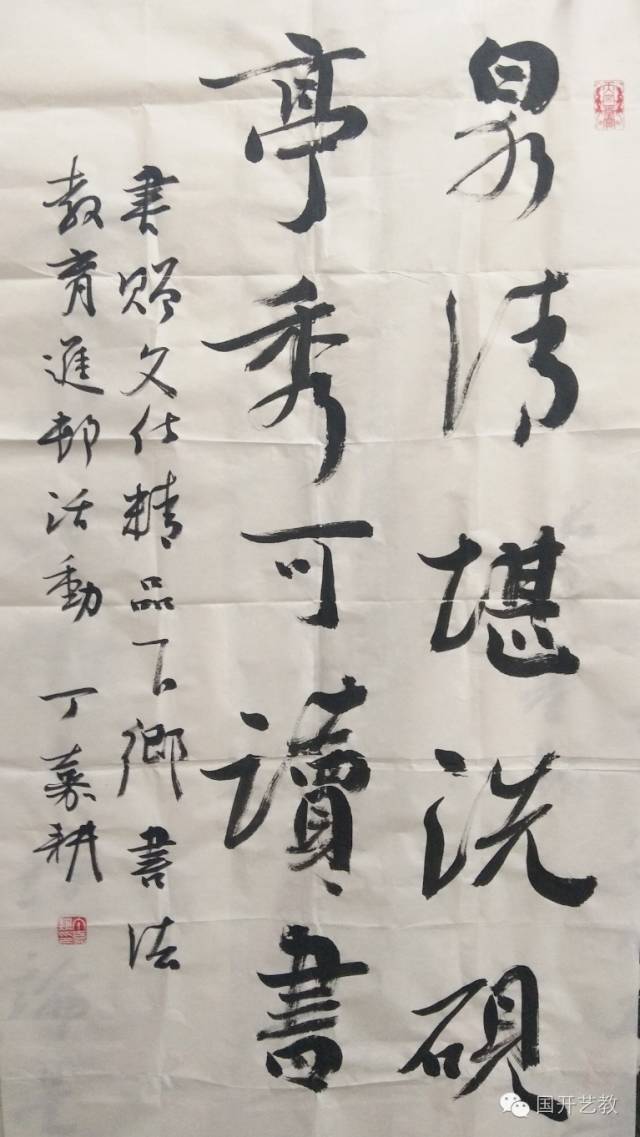 泉清堪洗砚
亭秀可讀書
書赠文仕精品下鄉書法
教育進邨活動 丁嘉耕
国开艺教